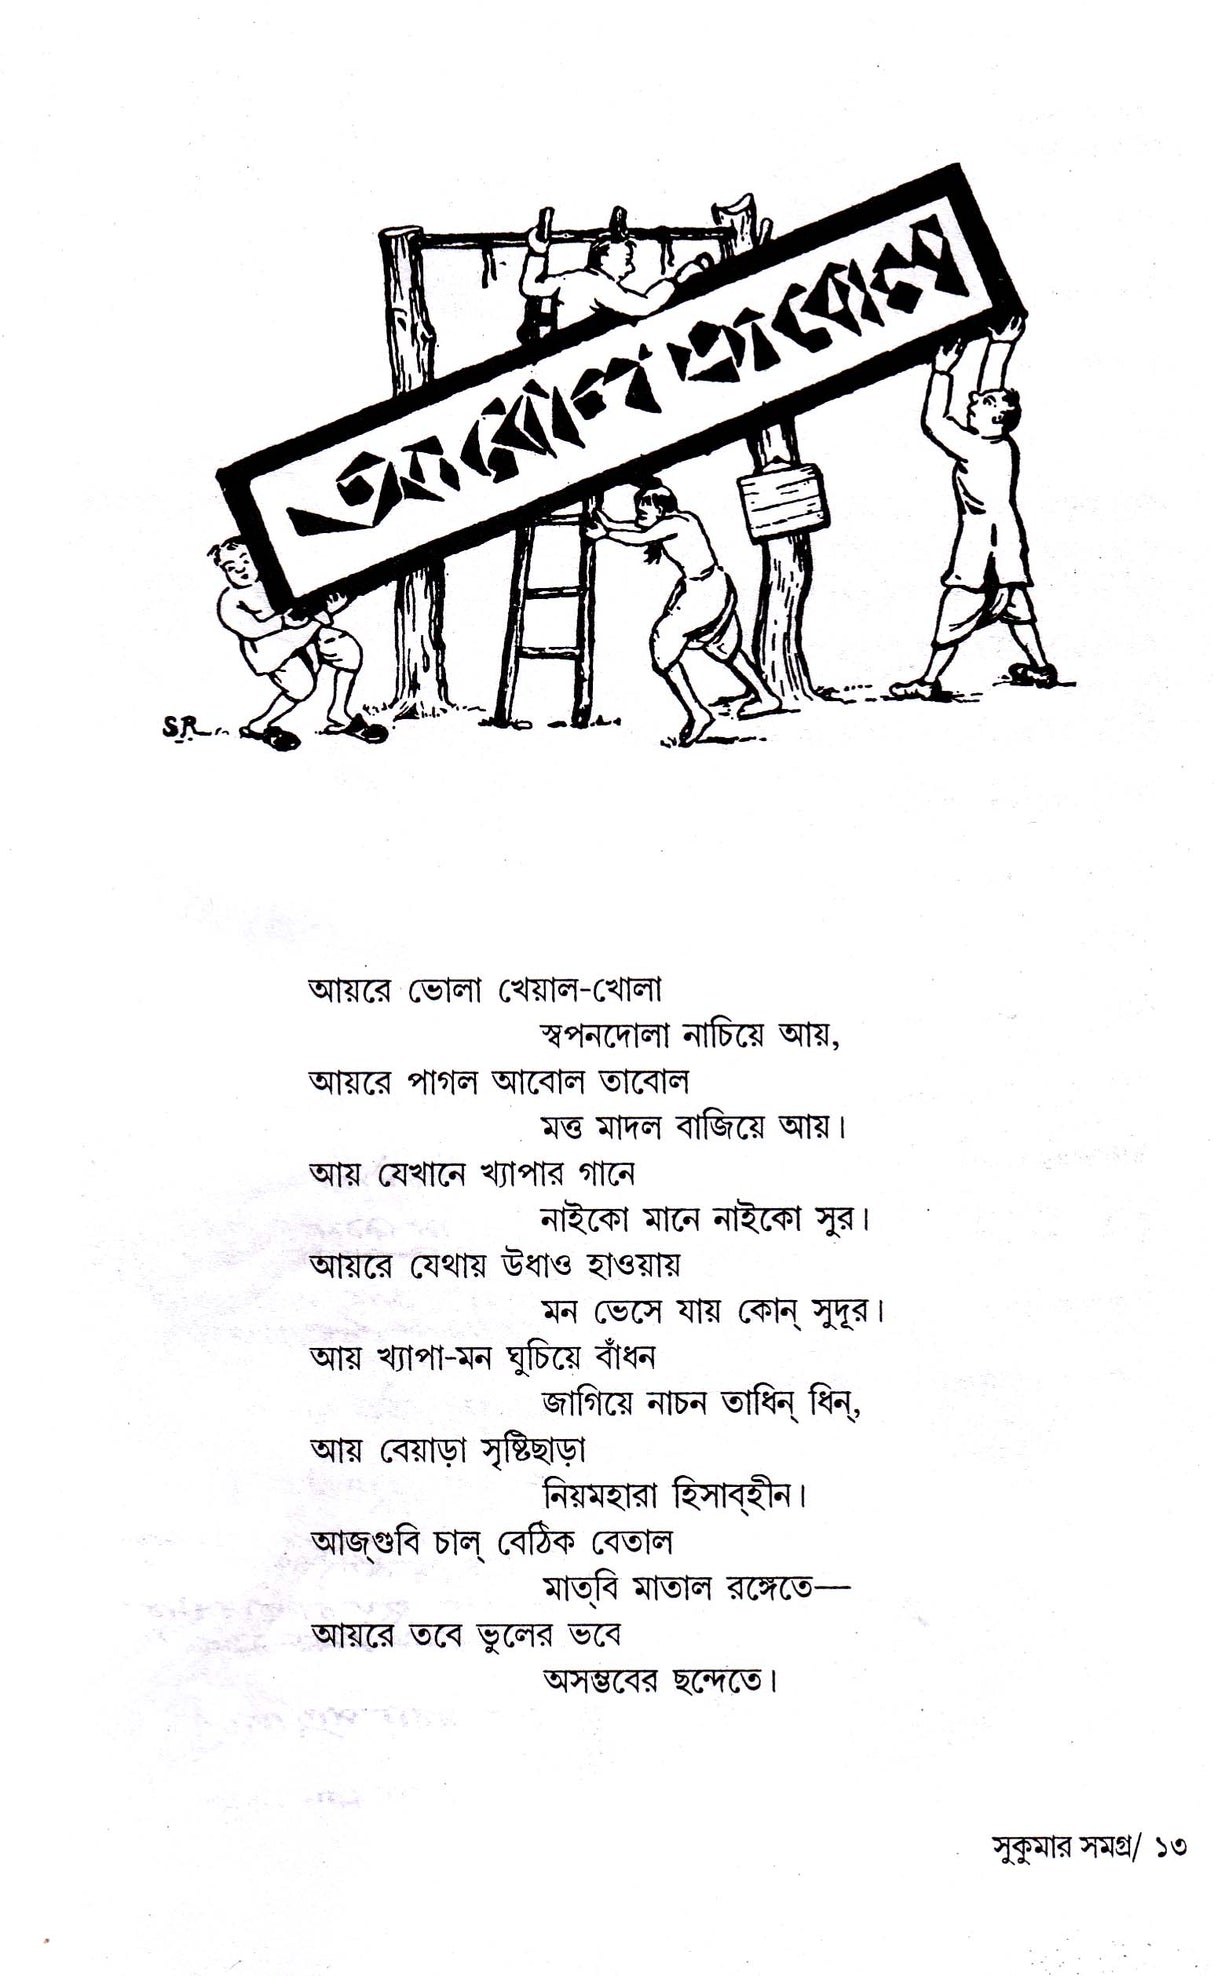 আবোল তাবোল
SR
আয়রে ভোলা খেয়াল-খোলা
স্বপনদোলা নাচিয়ে আয়,
আয়রে পাগল আবোল তাবোল
মত্ত মাদল বাজিয়ে আয়।
আয় যেখানে খ্যাপার গানে
নাইকো মানে নাইকো সুর।
আয়রে যেথায় উধাও হাওয়ায়
মন ভেসে যায় কোন্ সুদূর।
আয় খ্যাপা-মন ঘুচিয়ে বাঁধন
জাগিয়ে নাচন তাধিন্ ধিন্,
আয় বেয়াড়া সৃষ্টিছাড়া
নিয়মহারা হিসাব্‌হীন।
আজ্‌গুবি চাল্ বেঠিক বেতাল
মাত্‌বি মাতাল রঙ্গেতে—
আয়রে তবে ভুলের ভবে
অসম্ভবের ছন্দেতে।
সুকুমার সমগ্র/ ১৩